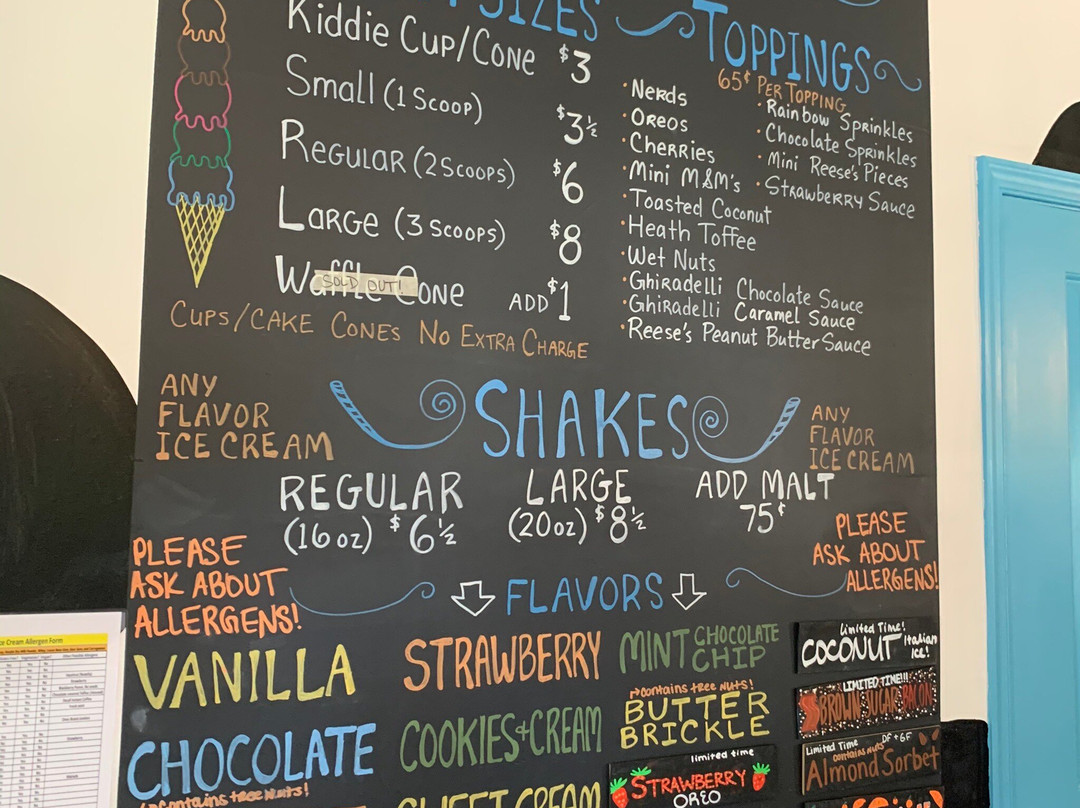 SIZES
Kiddie Cup/Cone $3
Small (1 Scoop) $3½
Regular (2 Scoops) $6
Large (3 Scoops) $8
Waffle Cone ADD $1
SOLD OUT!
Cups/Cake Cones No Extra Charge
TOPPINGS
65¢ Per Topping
• Nerds
• Oreos
• Cherries
• Mini M&M's
• Toasted Coconut
• Heath Toffee
• Wet Nuts
• Ghiradelli Chocolate Sauce
• Ghiradelli Caramel Sauce
• Reese's Peanut Butter Sauce
• Rainbow Sprinkles
• Chocolate Sprinkles
• Mini Reese's Pieces
• Strawberry Sauce
ANY
FLAVOR
ICE CREAM
SHAKES
ANY
FLAVOR
ICE CREAM
REGULAR
(16 oz) $6½
LARGE
(20oz) $8½
ADD MALT
75¢
PLEASE
ASK ABOUT
ALLERGENS!
FLAVORS
PLEASE
ASK ABOUT
ALLERGENS!
VANILLA
CHOCOLATE
contains tree nuts!
STRAWBERRY
COOKIES & CREAM
SWEET CREAM
MINT CHOCOLATE
CHIP
contains tree nuts!
BUTTER
BRICKLE
limited time
STRAWBERRY
OREO
Limited Time!
COCONUT Italian
Ice!
LIMITED TIME!!!
BROWN SUGAR BACON
Limited Time DF + GF
contains nuts
Almond Sorbet
Cream Allergen Form